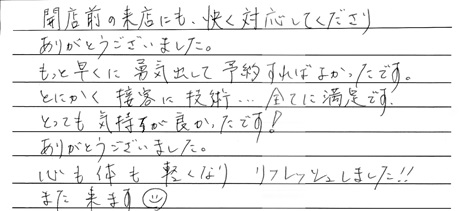 開店前の来店にも、快く対応してくださり
ありがとうございました。
もっと早くに勇気出して予約すればよかったです。
とにかく接客に技術…全てに満足です。
とっても気持ちが良かったです!
ありがとうございました。
心も体も軽くなりリフレッシュしました!!
また来ます